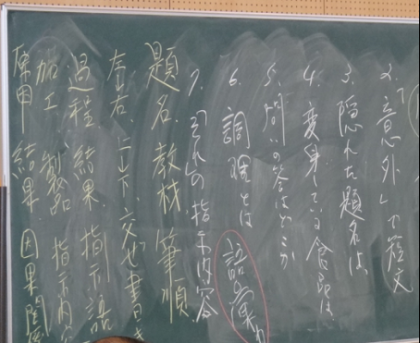 2.「意外」で短文
3. 隠れた題名は
4. 変身している食品は
5. 問いの答はいくつか
6. 調理とは 語彙力
7.「それ」の指示内容
題名 教材 筆順
左右 上下 交ぜ書き
過程 結果 指示語
加工 製品 指示内容
原因 結果 因果関係